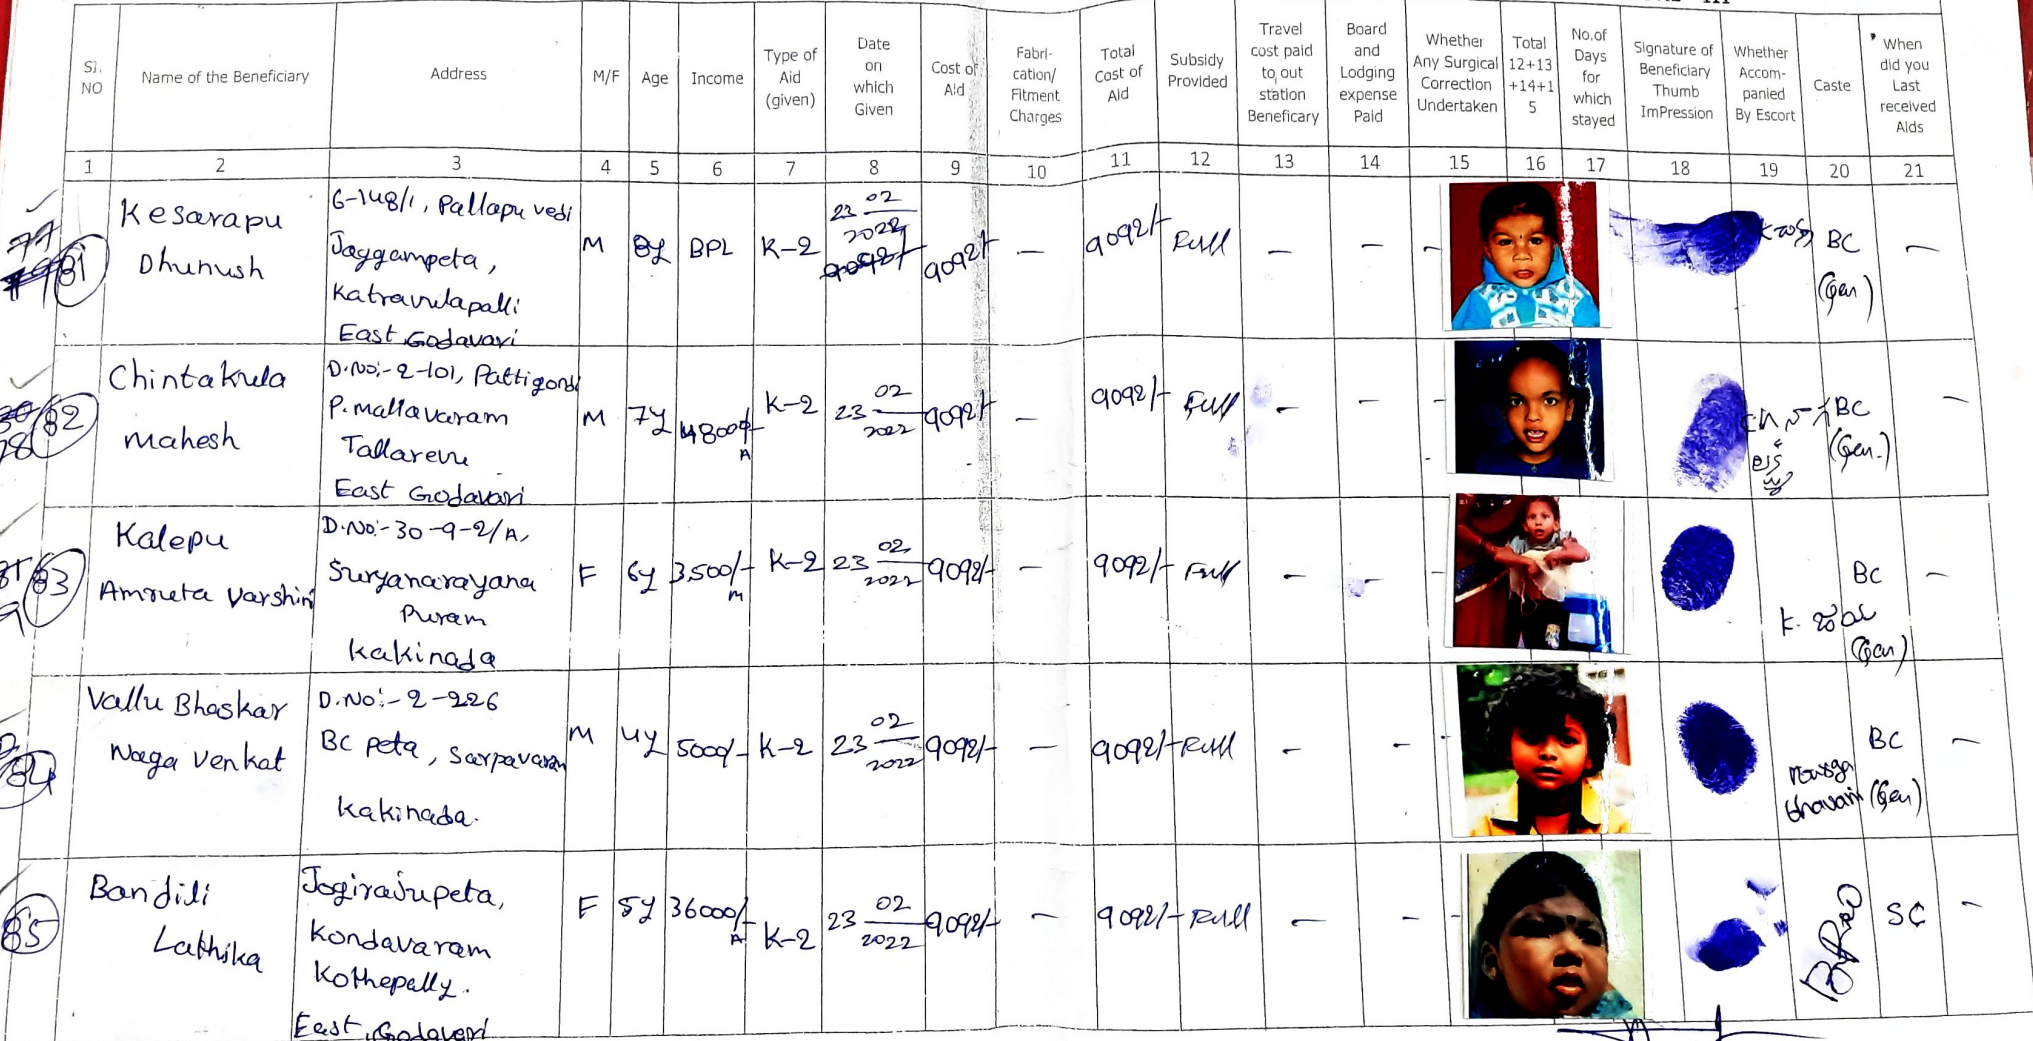 Sl. NO
Name of the Beneficiary
Address
M/F
Age
Income
Type of Aid (given)
Date on which Given
Cost of Aid
Fabri-cation/ Fitment Charges
Total Cost of Aid
Subsidy Provided
Travel cost paid to out station Beneficary
Board and Lodging expense Paid
Whether Any Surgical Correction Undertaken
Total 12+13+14+15
No.of Days for which stayed
Signature of Beneficiary Thumb ImPression
Whether Accom-panied By Escort
Caste
When did you Last received Aids
1 2 3 4 5 6 7 8 9 10 11 12 13 14 15 16 17 18 19 20 21
81
Kesarapu
Dhunush
6-148/1, Pallapu vedi
Jaggampeta,
Katravulapalli
East Godavari
M 8y BPL K-2 23 02 2022 9092/- — 9092/- Full — — - — BC (Gen) —
82
Chintakula
Mahesh
D.No:- 2-101, Pattigondi
P. mallavaram
Tallarevu
East Godavari
M 7y 48000/- A K-2 23 02 2022 9092/- — 9092/- Full — — - BC (Gen.) —
83
Kalepu
Amruta Varshini
D.No:- 30-9-2/A,
Suryanarayana
Puram
Kakinada
F 6y 3,500/- m K-2 23 02 2022 9092/- — 9092/- Full — — - BC (Gen) —
84
Vallu Bhaskar
Naga Venkat
D.No:- 2-226
BC peta, Sarpavaram
Kakinada.
M 4y 5000/- K-2 23 02 2022 9092/- — 9092/- Full — — - bhavani BC (Gen) —
85
Bandili
Lathika
Jogirajupeta,
Kondavaram
Kothepally.
East Godavari
F 5y 36000/- A K-2 23 02 2022 9092/- — 9092/- Full — — - SC —